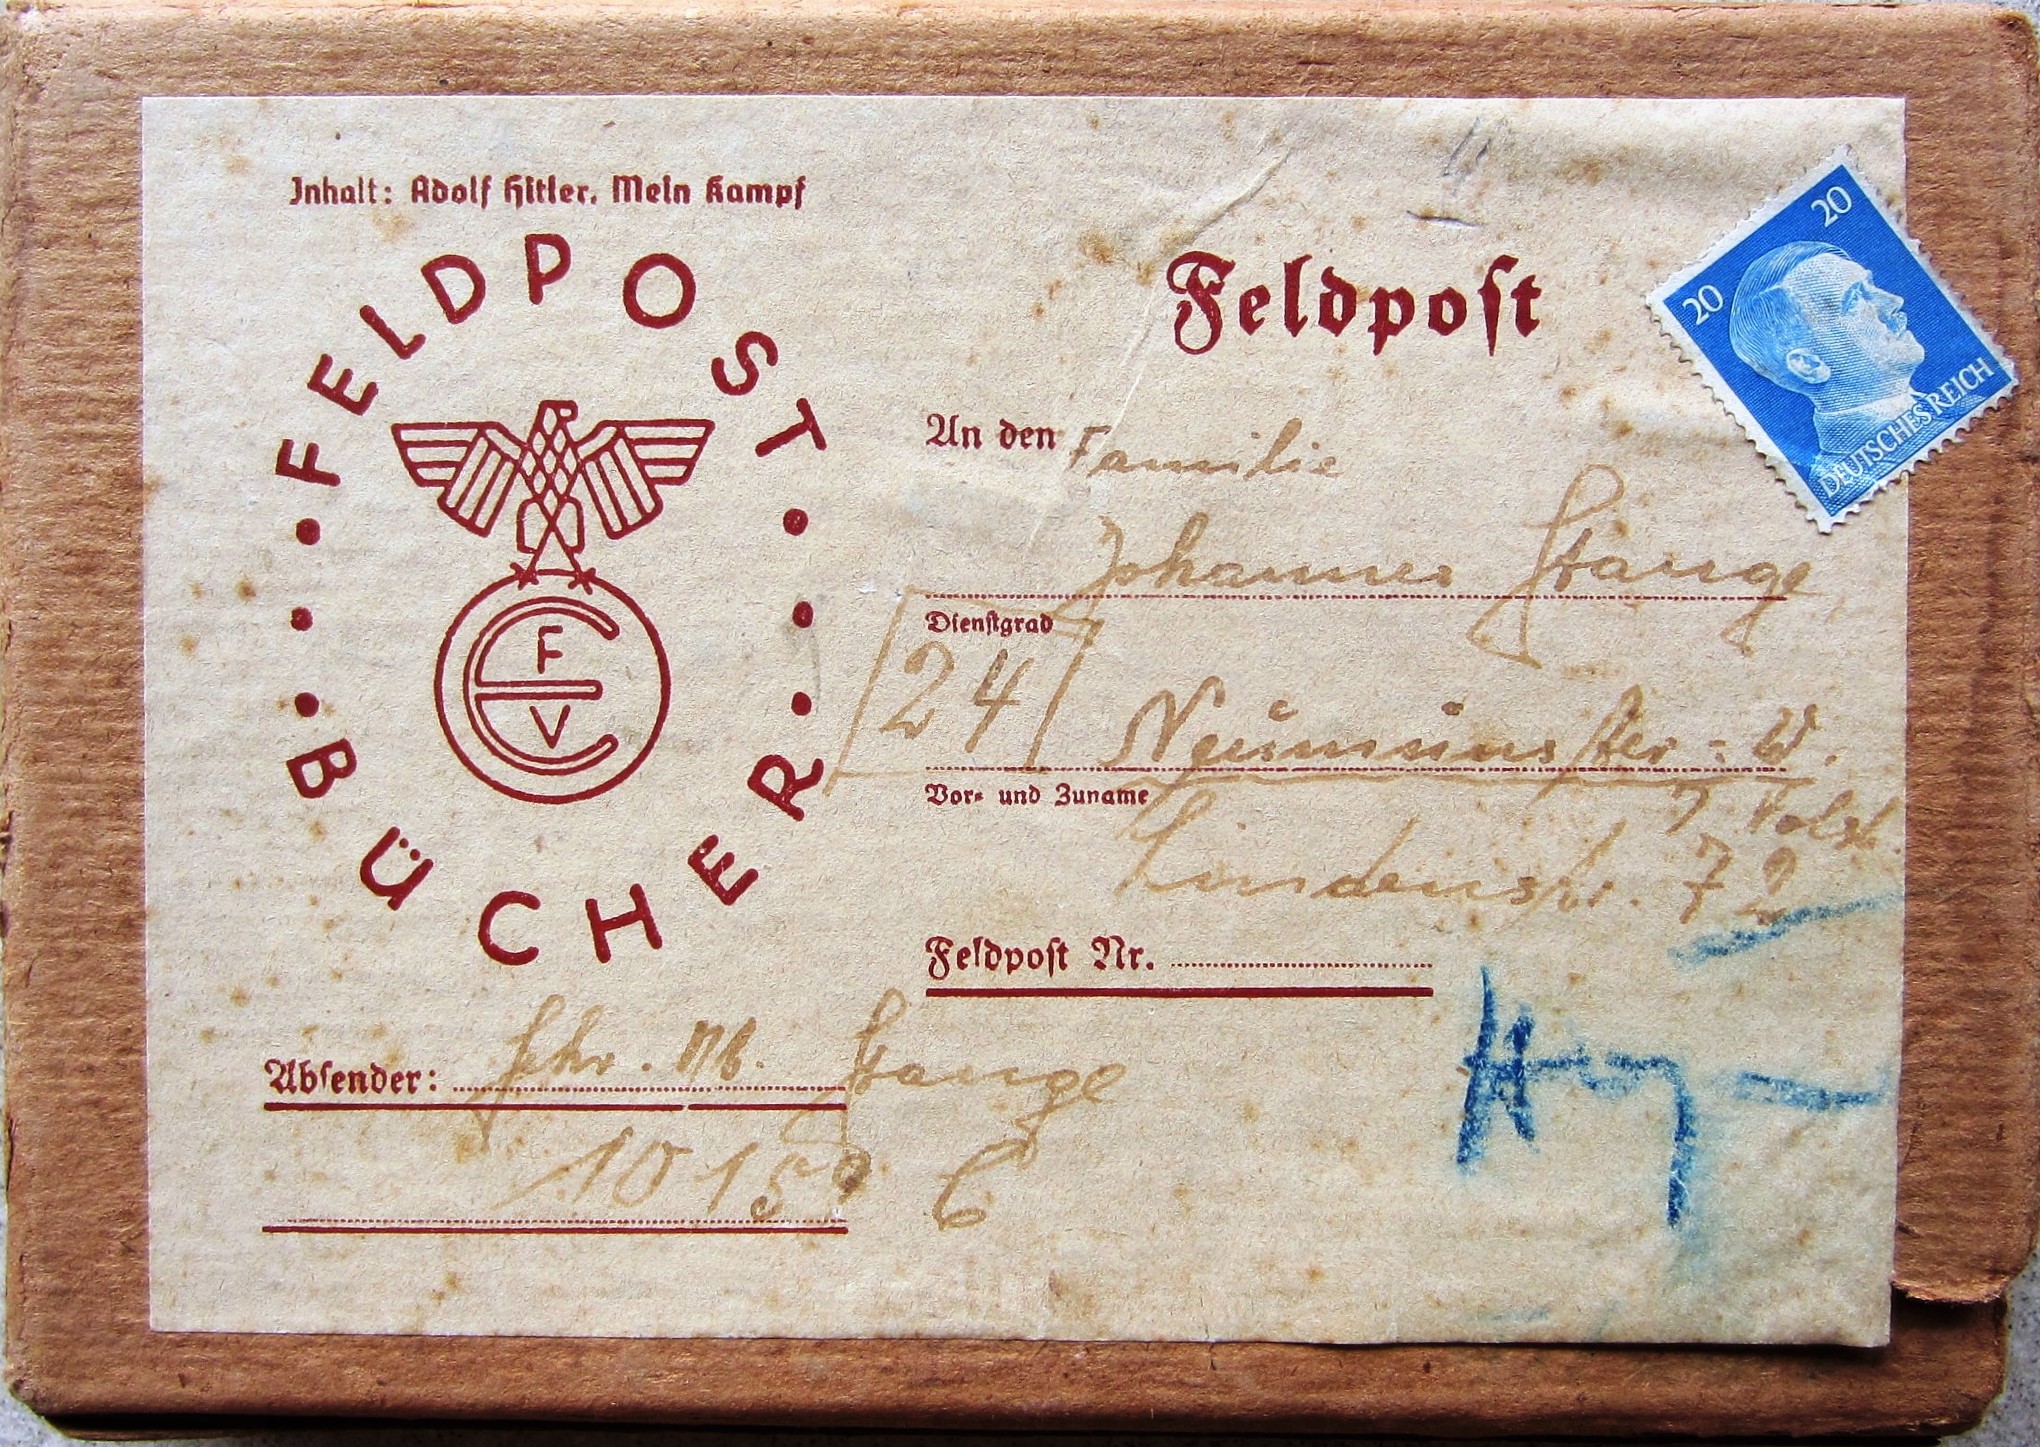 Inhalt: Adolf Hitler, Mein Kampf
FELDPOST
BÜCHER
F
V
Feldpost
20
20
DEUTSCHES REICH
An den Familie
Johannes Stange
Dienstgrad
24 Neumünster-W.
Vor- und Zuname
Lindenstr. 72
Feldpost Nr.
Absender: Stange